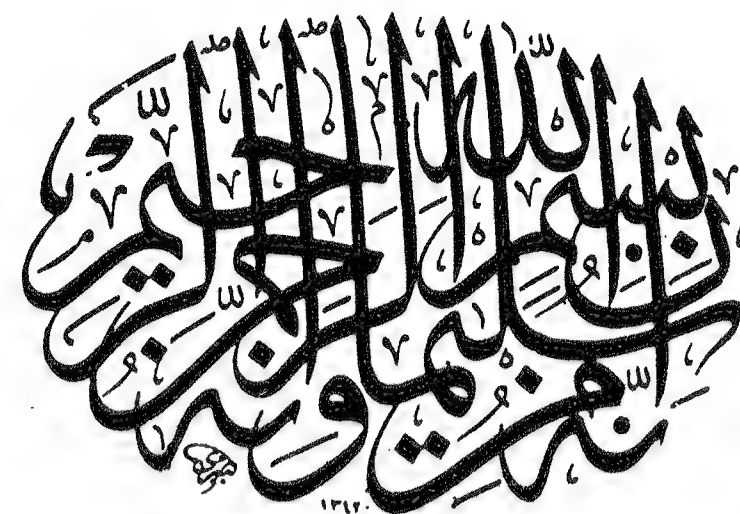 انه من سليمان وانه بسم الله الرحمن الرحيم